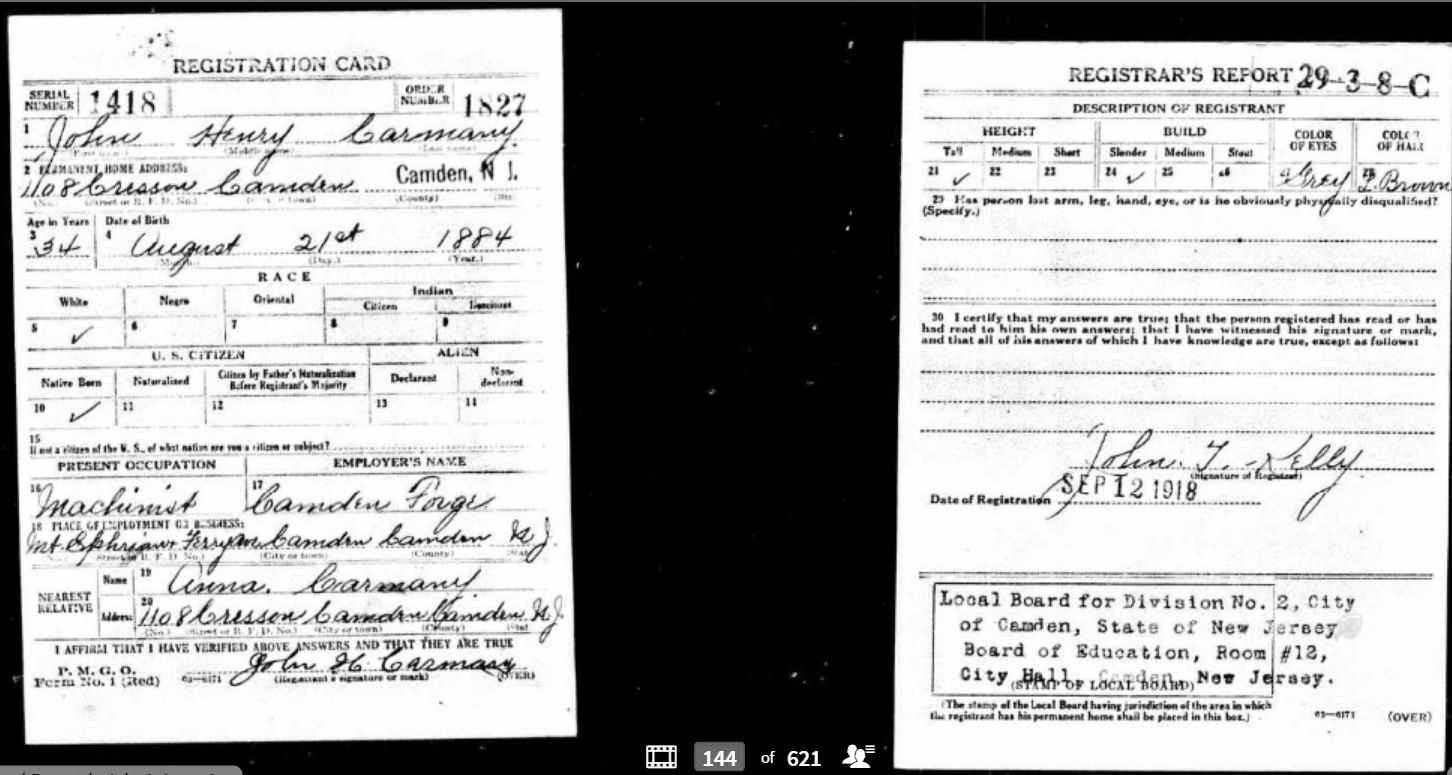 REGISTRATION CARD
SERIAL NUMBER 1418 ORDER NUMBER 1827
1 John Henry Carmany
(First name) (Middle name) (Last name)
2 PERMANENT HOME ADDRESS:
1108 Cresson Camden Camden, N J.
(No.) (Street or R. F. D. No.) (City or town) (County) (State)
Age in Years Date of Birth
3 34 4 August 21st 1884
(Month.) (Day.) (Year.)
RACE
White Negro Oriental Indian
Citizen Noncitizen
5 ✓ 6 7 8 9
U. S. CITIZEN ALIEN
Native Born Naturalized Citizen by Father's Naturalization Before Registrant's Majority Declarant Non-declarant
10 ✓ 11 12 13 14
15
If not a citizen of the U. S., of what nation are you a citizen or subject?
PRESENT OCCUPATION EMPLOYER'S NAME
16 Machinist 17 Camden Forge
18 PLACE OF EMPLOYMENT OR BUSINESS:
Mt. Ephriam + Ferry Ave Camden Camden N J.
(No.) (Street or R. F. D. No.) (City or town) (County) (State)
NEAREST RELATIVE Name 19 Anna. Carmany
Address 20 1108 Cresson Camden Camden N J.
(No.) (Street or R. F. D. No.) (City or town) (County) (State)
I AFFIRM THAT I HAVE VERIFIED ABOVE ANSWERS AND THAT THEY ARE TRUE
P. M. G. O.
Form No. 1 (Red) 63—6171 John H. Carmany
(Registrant's signature or mark) (OVER)
REGISTRAR'S REPORT 29-3-8-C
DESCRIPTION OF REGISTRANT
HEIGHT BUILD COLOR OF EYES COLOR OF HAIR
Tall Medium Short Slender Medium Stout
21 ✓ 22 23 24 ✓ 25 26 27 Grey 28 L. Brown
29 Has person lost arm, leg, hand, eye, or is he obviously physically disqualified?
(Specify.)
30 I certify that my answers are true; that the person registered has read or has
had read to him his own answers; that I have witnessed his signature or mark,
and that all of his answers of which I have knowledge are true, except as follows:
John. T. Kelly
(Signature of Registrar)
Date of Registration SEP 12 1918
Local Board for Division No. 2, City
of Camden, State of New Jersey
Board of Education, Room #12,
City Hall, Camden, New Jersey.
(STAMP OF LOCAL BOARD)
(The stamp of the Local Board having jurisdiction of the area in which
the registrant has his permanent home shall be placed in this box.)
63—6171 (OVER)
144 of 621